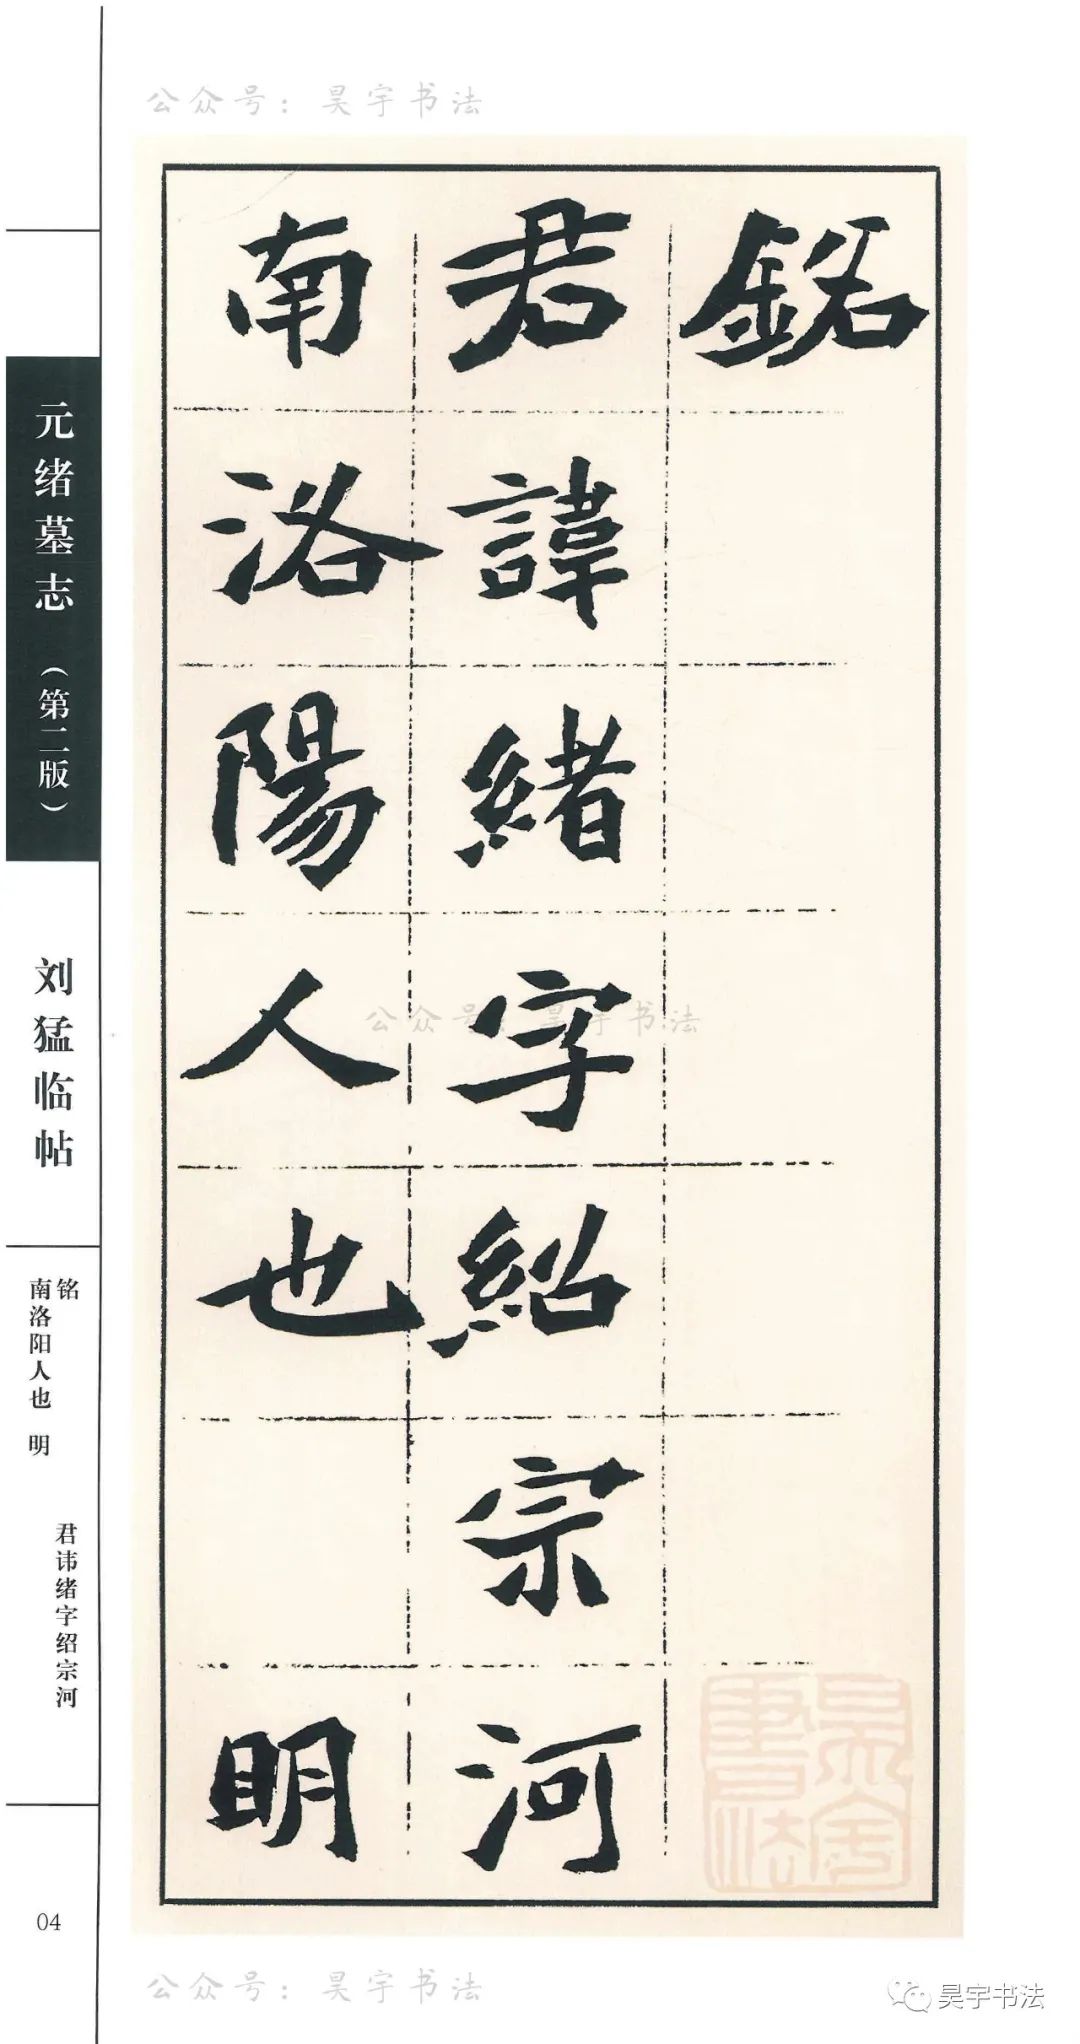 公众号：昊宇书法
銘
君諱緒字紹宗河
南洛陽人也 明
元绪墓志（第二版）
刘猛临帖
铭 君讳绪字绍宗河
南洛阳人也 明
04
公众号：昊宇书法
昊宇書法
公众号：昊宇书法
昊宇书法